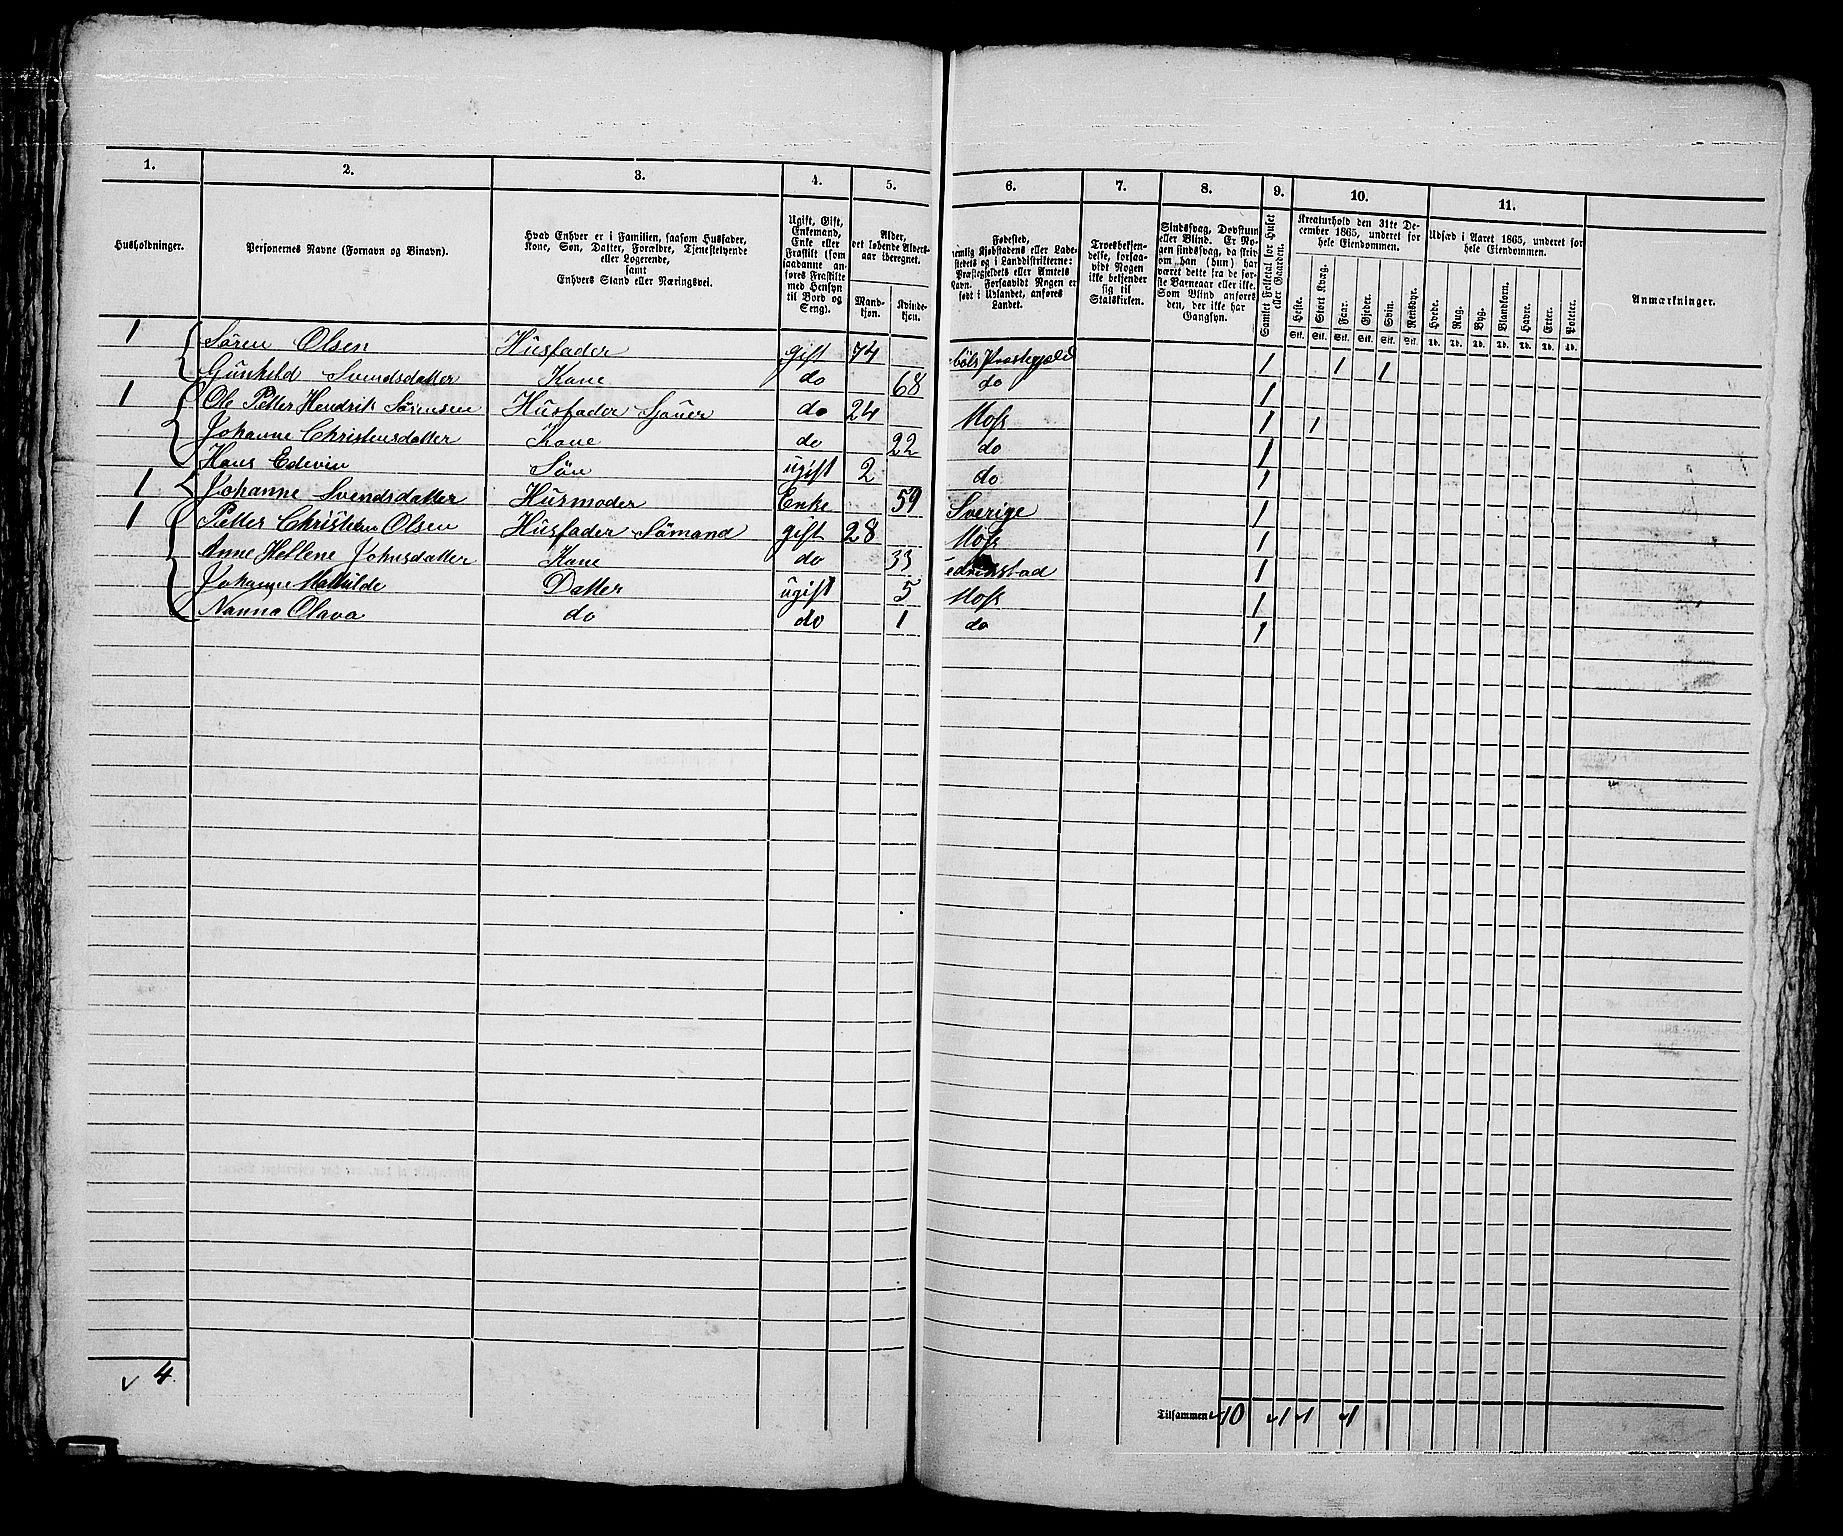 1. 2. 3. 4. 5. 6. 7. 8. 9. 10. 11.
Husholdninger.
Personernes Navne (Fornavn og Binavn).
Hvad Enhver er i Familien, saasom Husfader,
Kone, Søn, Datter, Forældre, Tjenestetyende
eller Logerende,
samt
Enhvers Stand eller Næringsvei.
Ugift, Gift,
Enkemand,
Enke eller
Fraskilt (som
saadanne an-
føres Fraskilte
med Hensyn
til Bord og
Seng).
Alder,
det løbende Alders-
aar iberegnet.
Mand-
kjøn.
Kvinde-
kjøn.
Fødested,
nemlig Kjøbstadens eller Lade-
stedets og i Landdistrikterne:
Præstegjeldets eller Amtets
Navn. Forsaavidt Nogen er
født i Udlandet, anføres
Landet.
Troesbekjen-
delse, forsaa-
vidt Nogen
ikke bekjender
sig til
Statskirken.
Sindssvag, Døvstum
eller Blind. Er No-
gen sindssvag, da skriv
om han (hun) har
været dette fra de før-
ste Barneaar eller ikke.
Som Blind anføres
den, der ikke har
Gangsyn.
Samlet Folketal for Huset
eller Gaarden.
Kreaturhold den 31te De-
cember 1865, underet for
hele Eiendommen.
Heste. Stort Kvæg. Faar. Gjeder. Svin. Rensdyr.
Stk. Stk. Stk. Stk. Stk. Stk.
Udsæd i Aaret 1865, underet for
hele Eiendommen.
Hvede. Rug. Byg. Blandkorn. Havre. Erter. Poteter.
Td. Td. Td. Td. Td. Td. Td.
Anmærkninger.
1 Sören Olsen Husfader gift 74 Præstegjeld 1 1 1
Gunhild Svendsdatter Kone do 68 do 1
1 Ole Petter Hendrik Sørensen Husfader Sjöuer do 24 Moss 1 1
Johanne Christensdatter Kone do 22 do 1
Hans Edevin Sön ugift 2 do 1
1 Johanne Svendsdatter Husmoder Enke 59 Sverige 1
1 Petter Christian Olsen Husfader Sömand gift 28 Moss 1
Anne Hellene Johnsdatter Kone do 33 edrikstad 1
Johanne Mathilde Datter ugift 5 Moss 1
Nanna Olava do do 1 do 1
4
Tilsammen 10 1 1 1